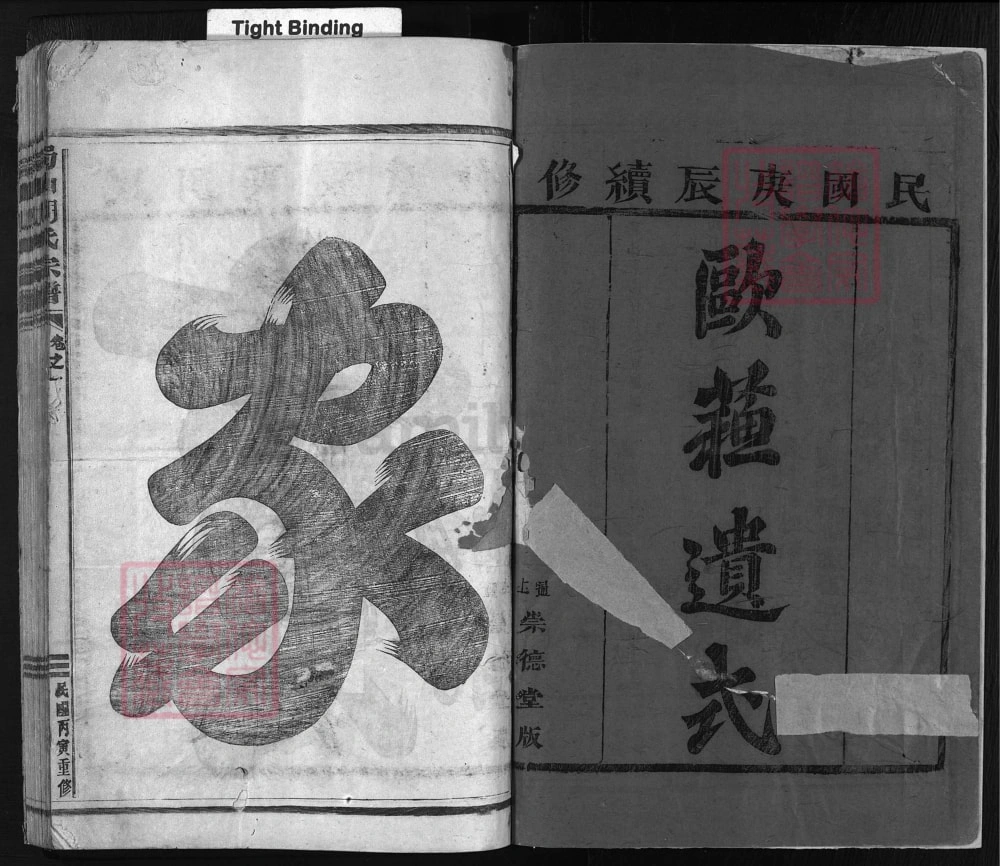 Tight Binding
民國庚辰續修
歐蘓遺式
崇德堂版
家
氏宗譜
卷之一
民國丙寅重修